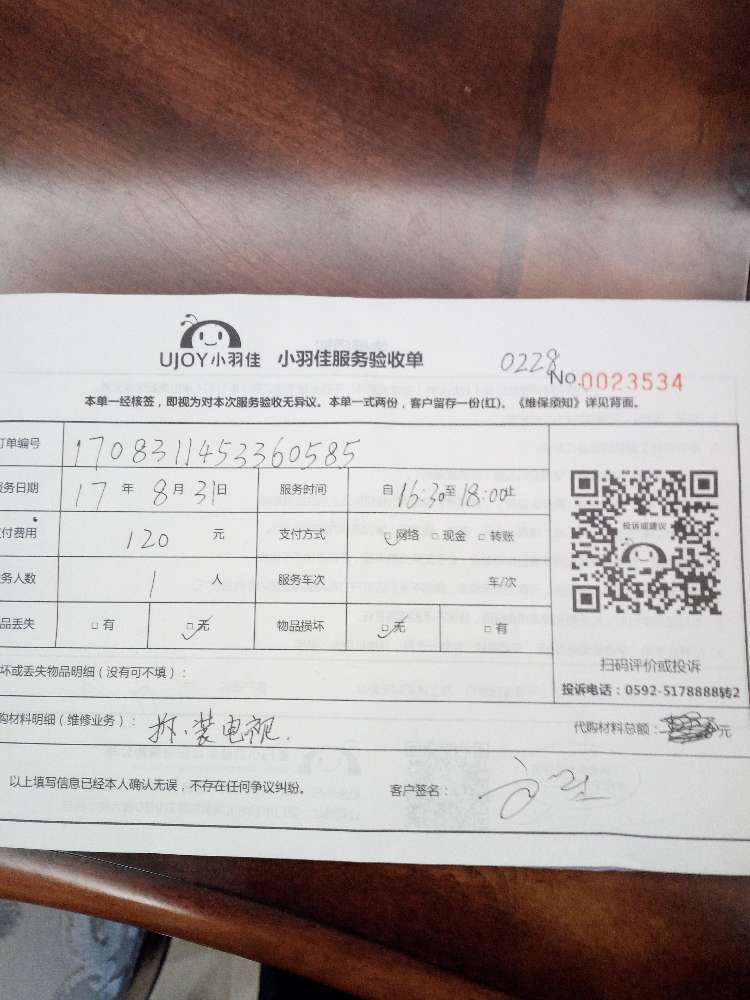 UJOY小羽佳 小羽佳服务验收单 0228 No.0023534
本单一经核签，即视为对本次服务验收无异议。本单一式两份，客户留存一份(红)。《维保须知》详见背面。
订单编号 1708311453360585
务日期 17 年 8 月 31 日 服务时间 自 16:30 至 18:00 止
付费用 120 元 支付方式 □ 网络 □ 现金 □ 转账
务人数 1 人 服务车次 车/次
品丢失 □ 有 □ 无 物品损坏 □ 无 □ 有
投诉或建议
扫码评价或投诉
投诉电话：0592-5178888转2
坏或丢失物品明细（没有可不填）：
购材料明细（维修业务）： 拆.装电视. 代购材料总额： 元
以上填写信息已经本人确认无误，不存在任何争议纠纷。 客户签名：